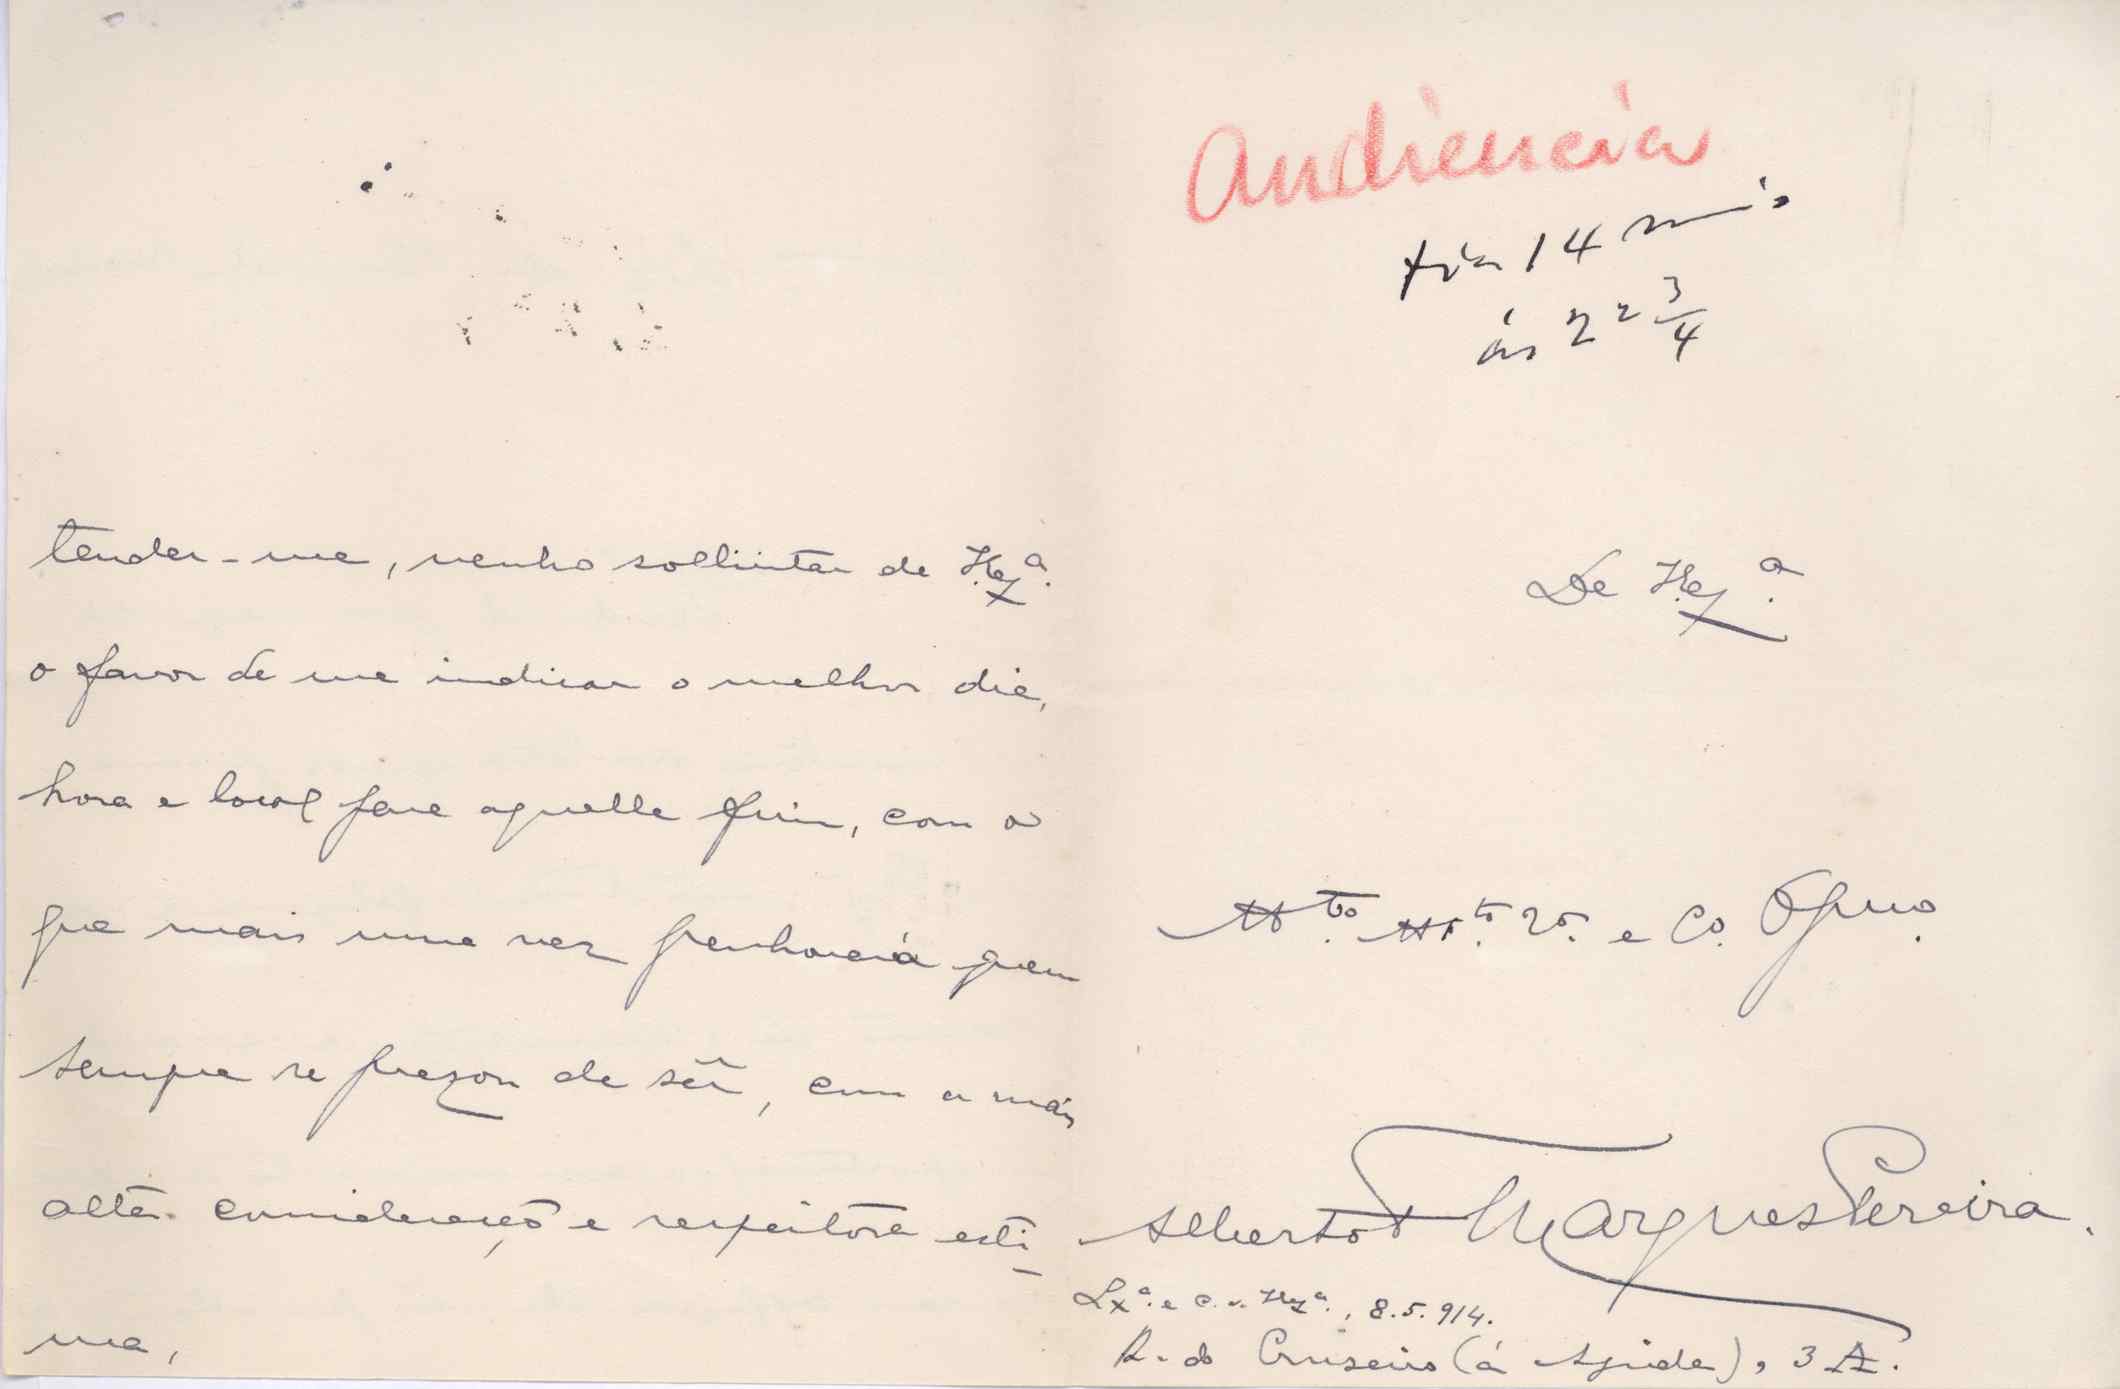 tender-me, venho sollicitar de V. Exª.
o favor de me indicar o melhor dia,
hora e local para aquelle fim, com o
que mais uma vez penhorará quem
sempre se prezou de sêr, com a mais
alta consideração e respeitosa esti-
ma,
Audiencia
dia 14 maio
ás 2 2 3/4
De V. Exª.
Mto. Mto. Vor. e Co. Obgmo.
Alberto Marques Pereira.
Lxª. e c. V. Exª., 8.5.914.
R. do Cruseiro (á Ajuda), 3 A.